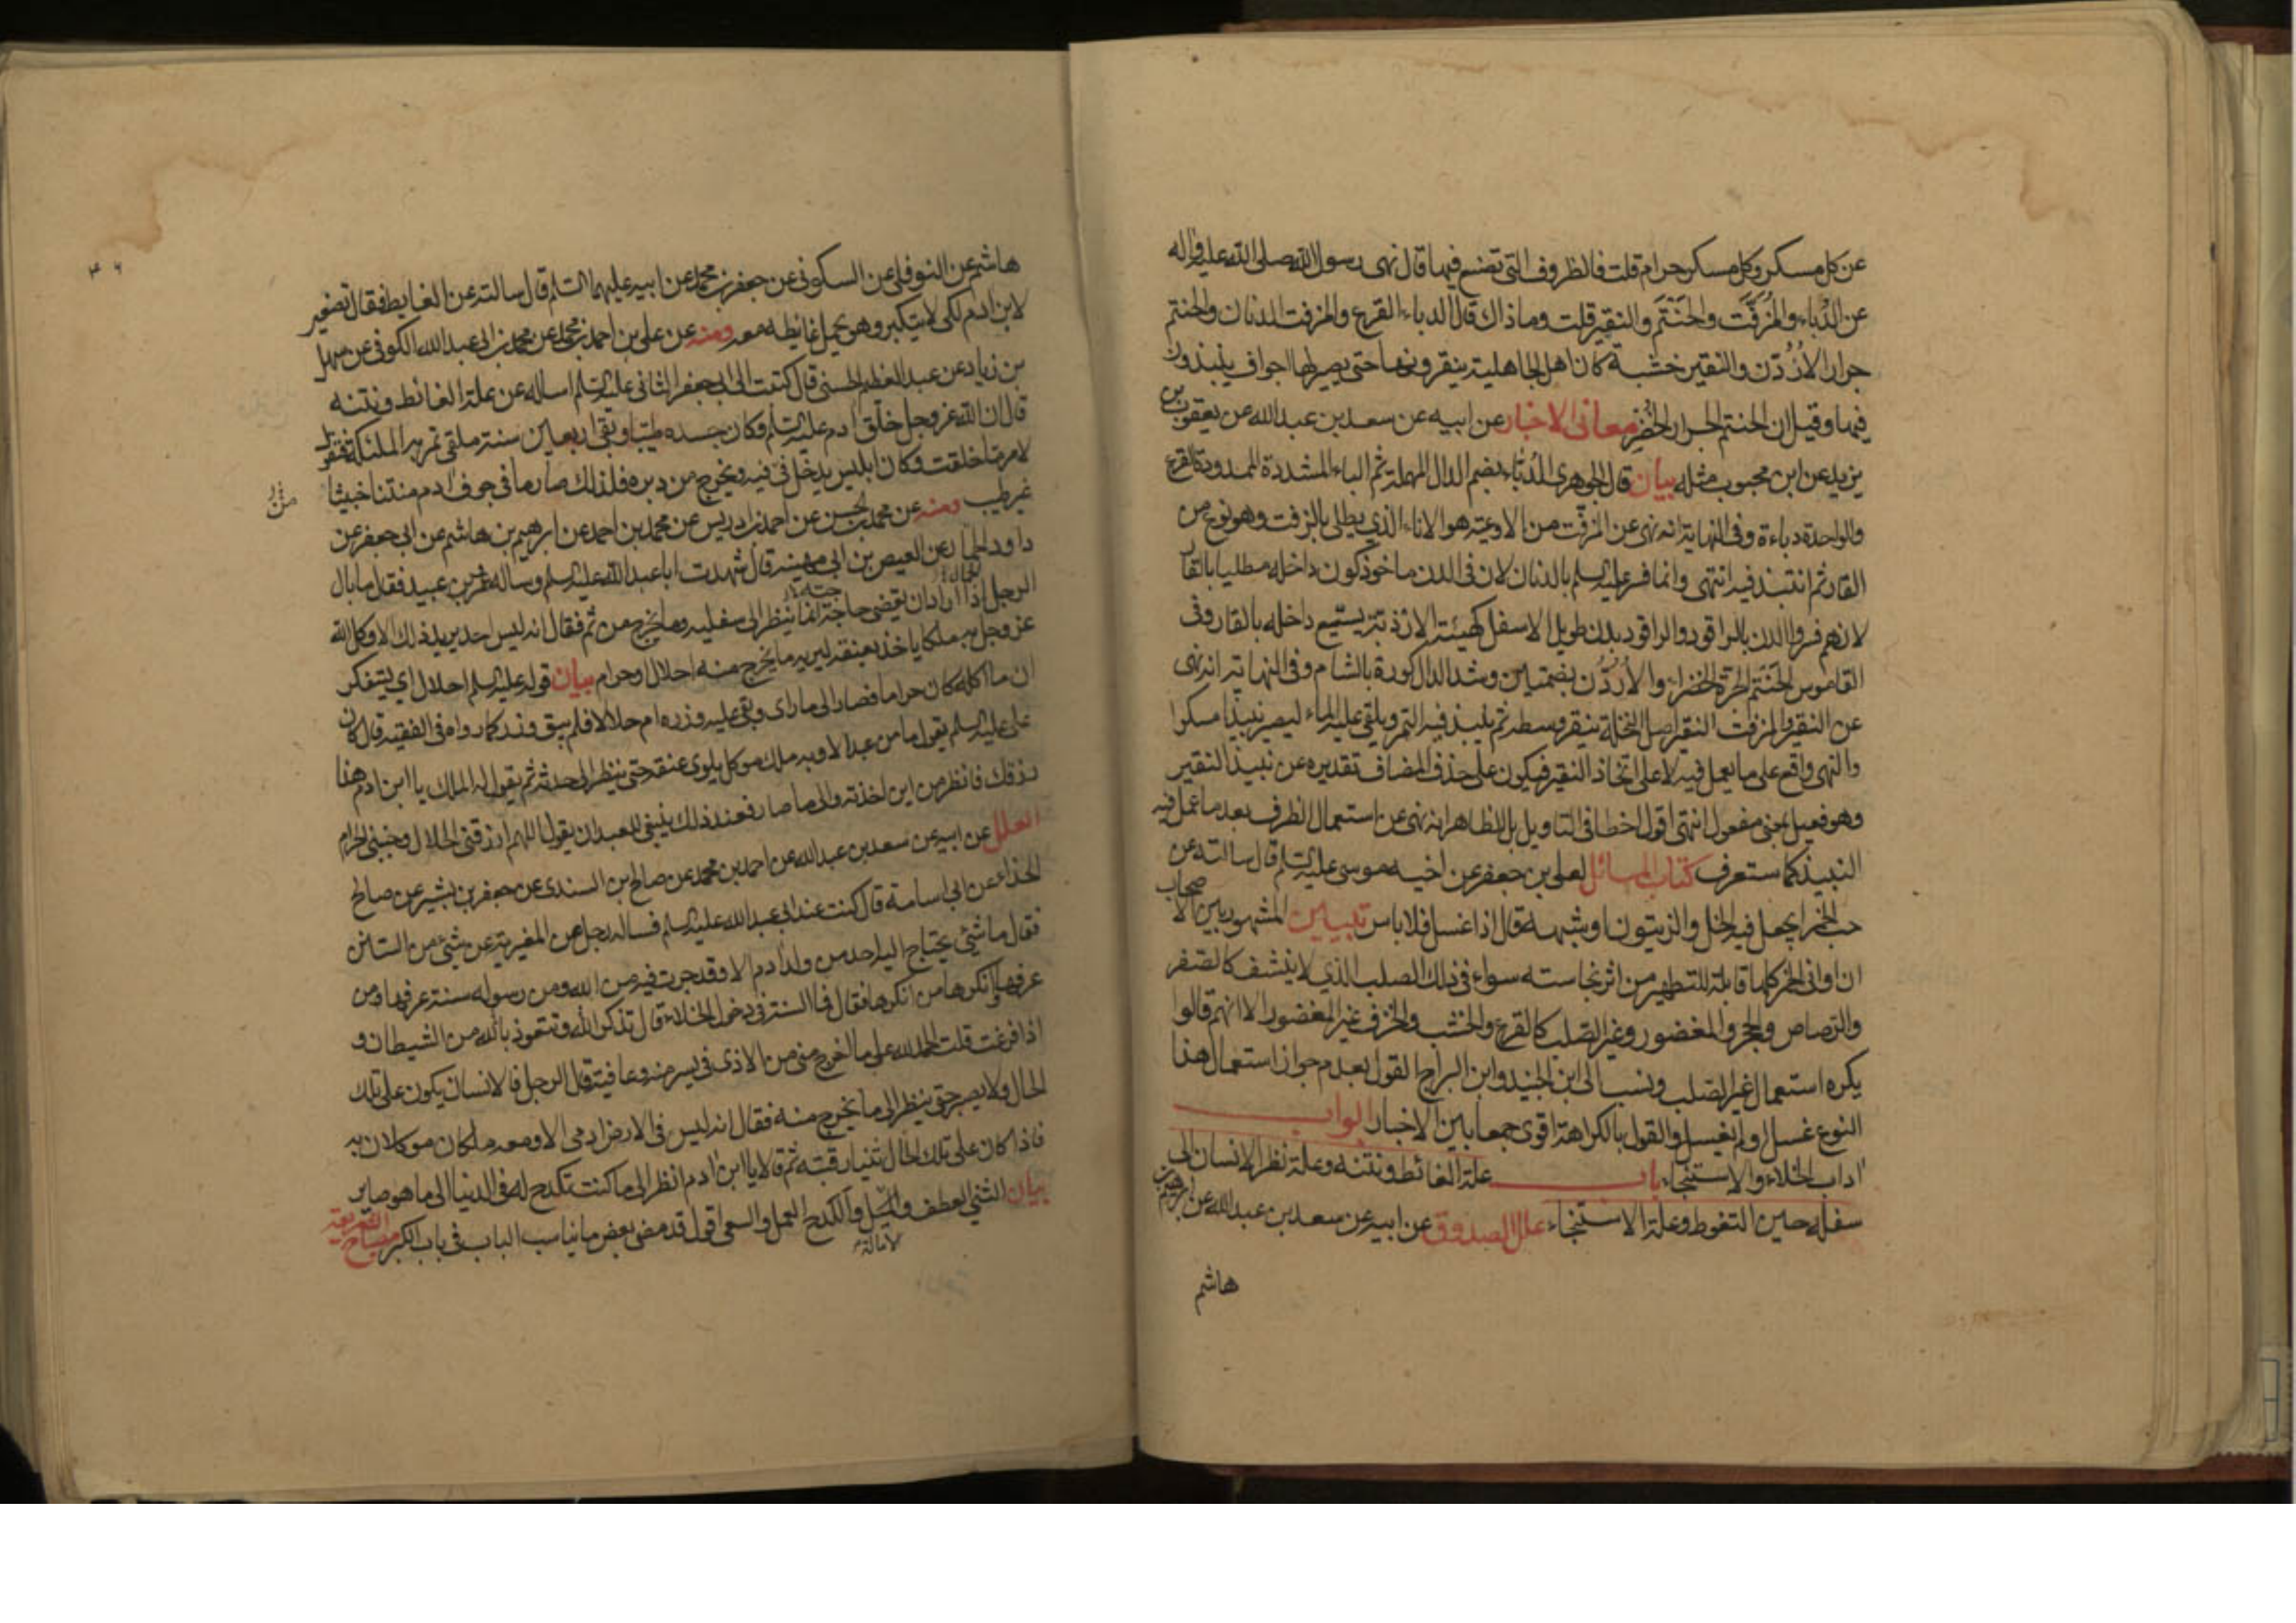 عن كل مسكر وكل مسكر حرام قلت فالظروف التى تصنع فيها قال نهى رسول الله صلى الله عليه واله
عن الدُّباء والمُزَفَّت والحَنْتَم والنقير قلت وما ذاك قال الدباء القرع والمزفت الدنان والحنتم
جرار الأُرْدُنّ والنقير خشبة كان اهل الجاهلية ينقرونها حتى يصير لها اجواف ينبذون
فيها وقيل ان الحنتم الجرار الخضر معانى الاخبار عن ابيه عن سعد بن عبد الله عن يعقوب بن
يزيد عن ابن محبوب مثله بيان قال الجوهرى الدُبّاء بضم الدال المهملة ثم الباء المشددة الممدودة القرع
والواحدة دباءة وفى النهاية انه نهى عن المزفّت من الاوعية هو الاناء الذي يطلى بالزفت وهو نوع من
القار ثم انتبذ فيه انتهى وانما فسر عليه السلم بالدنان لان فى الدن ماخوذ كون داخله مطليا بالقار
لانهم فسروا الدن بالراقود والراقود بدن طويل الاسفل كهيئة الاردبّة يسيّع داخله بالقار وفى
القاموس الحَنْتَم الجرة الخضراء والأُرْدُنّ بضمتين وشد الدال كورة بالشام وفى النهاية انه نهى
عن النقير والمزفت النقير اصل النخلة ينقر وسطه ثم ينبذ فيه التمر ويلقى عليه الماء ليصير نبيذا مسكرا
والنهى واقع على ما يعمل فيه لا على اتخاذ النقير فيكون على حذف المضاف تقديره عن نبيذ النقير
وهو فعيل بمعنى مفعول انتهى اقول اخطا فى التاويل بل الظاهر انه نهى عن استعمال الظرف بعد ما عمل فيه
النبيذ كما ستعرف كتاب المسائل لعلى بن جعفر عن اخيه موسى عليه السلم قال سالته عن
حب الخمر ايجعل فيه الخل والزيتون او شبهه قال اذا غسل فلا باس تبيين المشهور بين الاصحاب
ان اوانى الخمر كلها قابلة للتطهير من اثر نجاسته سواء فى ذلك الصلب الذي لا ينشف كالصفر
والرصاص والحجر والمغضور وغير الصلب كالقرع والخشب والخزف غير المغضور الا انهم قالوا
يكره استعمال غير الصلب ونسب الى ابن الجنيد وابن البراج القول بعدم جواز استعمال هذا
النوع غسل او لم يغسل والقول بالكراهة اقوى جمعا بين الاخبار ابواب
اداب الخلاء والاستنجاء باب علة الغائط ونتنه وعلة نظر الانسان الى
سفله حين التغوط وعلة الاستنجاء علل الصدوق عن ابيه عن سعد بن عبد الله عن ابرهيم بن
هاشم
هاشم عن النوفلى عن السكونى عن جعفر بن محمد عن ابيه عليهما السلم قال سالته عن الغايط فقال تصغير
لابن ادم لكى لا يتكبر وهو يحمل غائطه معه ومنه عن على بن احمد بن محمد عن محمد بن ابى عبد الله الكوفى عن سهل
بن زياد عن عبد العظيم الحسنى قال كتبت الى ابى جعفر الثانى عليه السلم اساله عن علة الغائط ونتنه
قال ان الله عز وجل خلق ادم عليه السلم وكان جسده طيبا وبقى اربعين سنة ملقى تمر به الملئكة فتقول
لامر ما خلقت وكان ابليس يدخل فى فيه ويخرج من دبره فلذلك صار ما فى جوف ادم منتنا خبيثا
غير طيب ومنه عن محمد بن الحسن عن احمد بن ادريس عن محمد بن احمد عن ابرهيم بن هاشم عن ابى جعفر عن
داود الجمال عن العيص بن ابى مهينة قال شهدت ابا عبد الله عليه السلم وساله عمرو بن عبيد فقال ما بال
الرجل اذا اراد ان يقضى حاجة انما ينظر الى سفليه وما يخرج من ثم فقال انه ليس احد يريد ذلك الا وكل الله
عز وجل به ملكا ياخذ بعنقه ليريه ما يخرج منه احلال او حرام بيان قوله عليه السلم احلال اي ليتفكر
ان ما اكله كان حراما فصار الى ما راى وبقى عليه وزره ام حلالا فلم يبق وزد كما رواه فى الفقيه قال كان
على عليه السلم يقول ما من عبد الا وبه ملك موكل يلوى عنقه حتى ينظر الى حدثه ثم يقول له الملك يا ابن ادم هذا
رزقك فانظر من اين اخذته والى ما صار فعند ذلك ينبغى للعبد ان يقول اللهم ارزقنى الحلال وجنبنى الحرام
العلل عن ابيه عن سعد بن عبد الله عن احمد بن محمد عن صالح بن السندى عن جعفر بن بشير عن صالح
الحذاء عن ابى اسامة قال كنت عند ابى عبد الله عليه السلم فساله رجل من المغيرية عن شئ من السنن
فقال ما شئ يحتاج اليه احد من ولد ادم الا وقد جرت فيه من الله ومن رسوله سنة عرفها من
عرفها وانكرها من انكرها فقال فما السنة فى دخول الخلاء قال تذكر الله وتتعوذ بالله من الشيطان و
اذا فرغت قلت الحمد لله على ما اخرج منى من الاذى فى يسر منه وعافية قال الرجل فالانسان يكون على تلك
الحال ولا يصبر حتى ينظر الى ما يخرج منه فقال انه ليس فى الارض ادمى الا ومعه ملكان موكلان به
فاذا كان على تلك الحال ثنيا رقبته ثم قالا يا ابن ادم انظر الى ما كنت تكدح له فى الدنيا الى ما هو صاير
بيان الثنى العطف والميل والكدح العمل والسعى اقول قد مضى بعض ما يناسب الباب فى باب الكبر مصباح الشريعة
الامالة